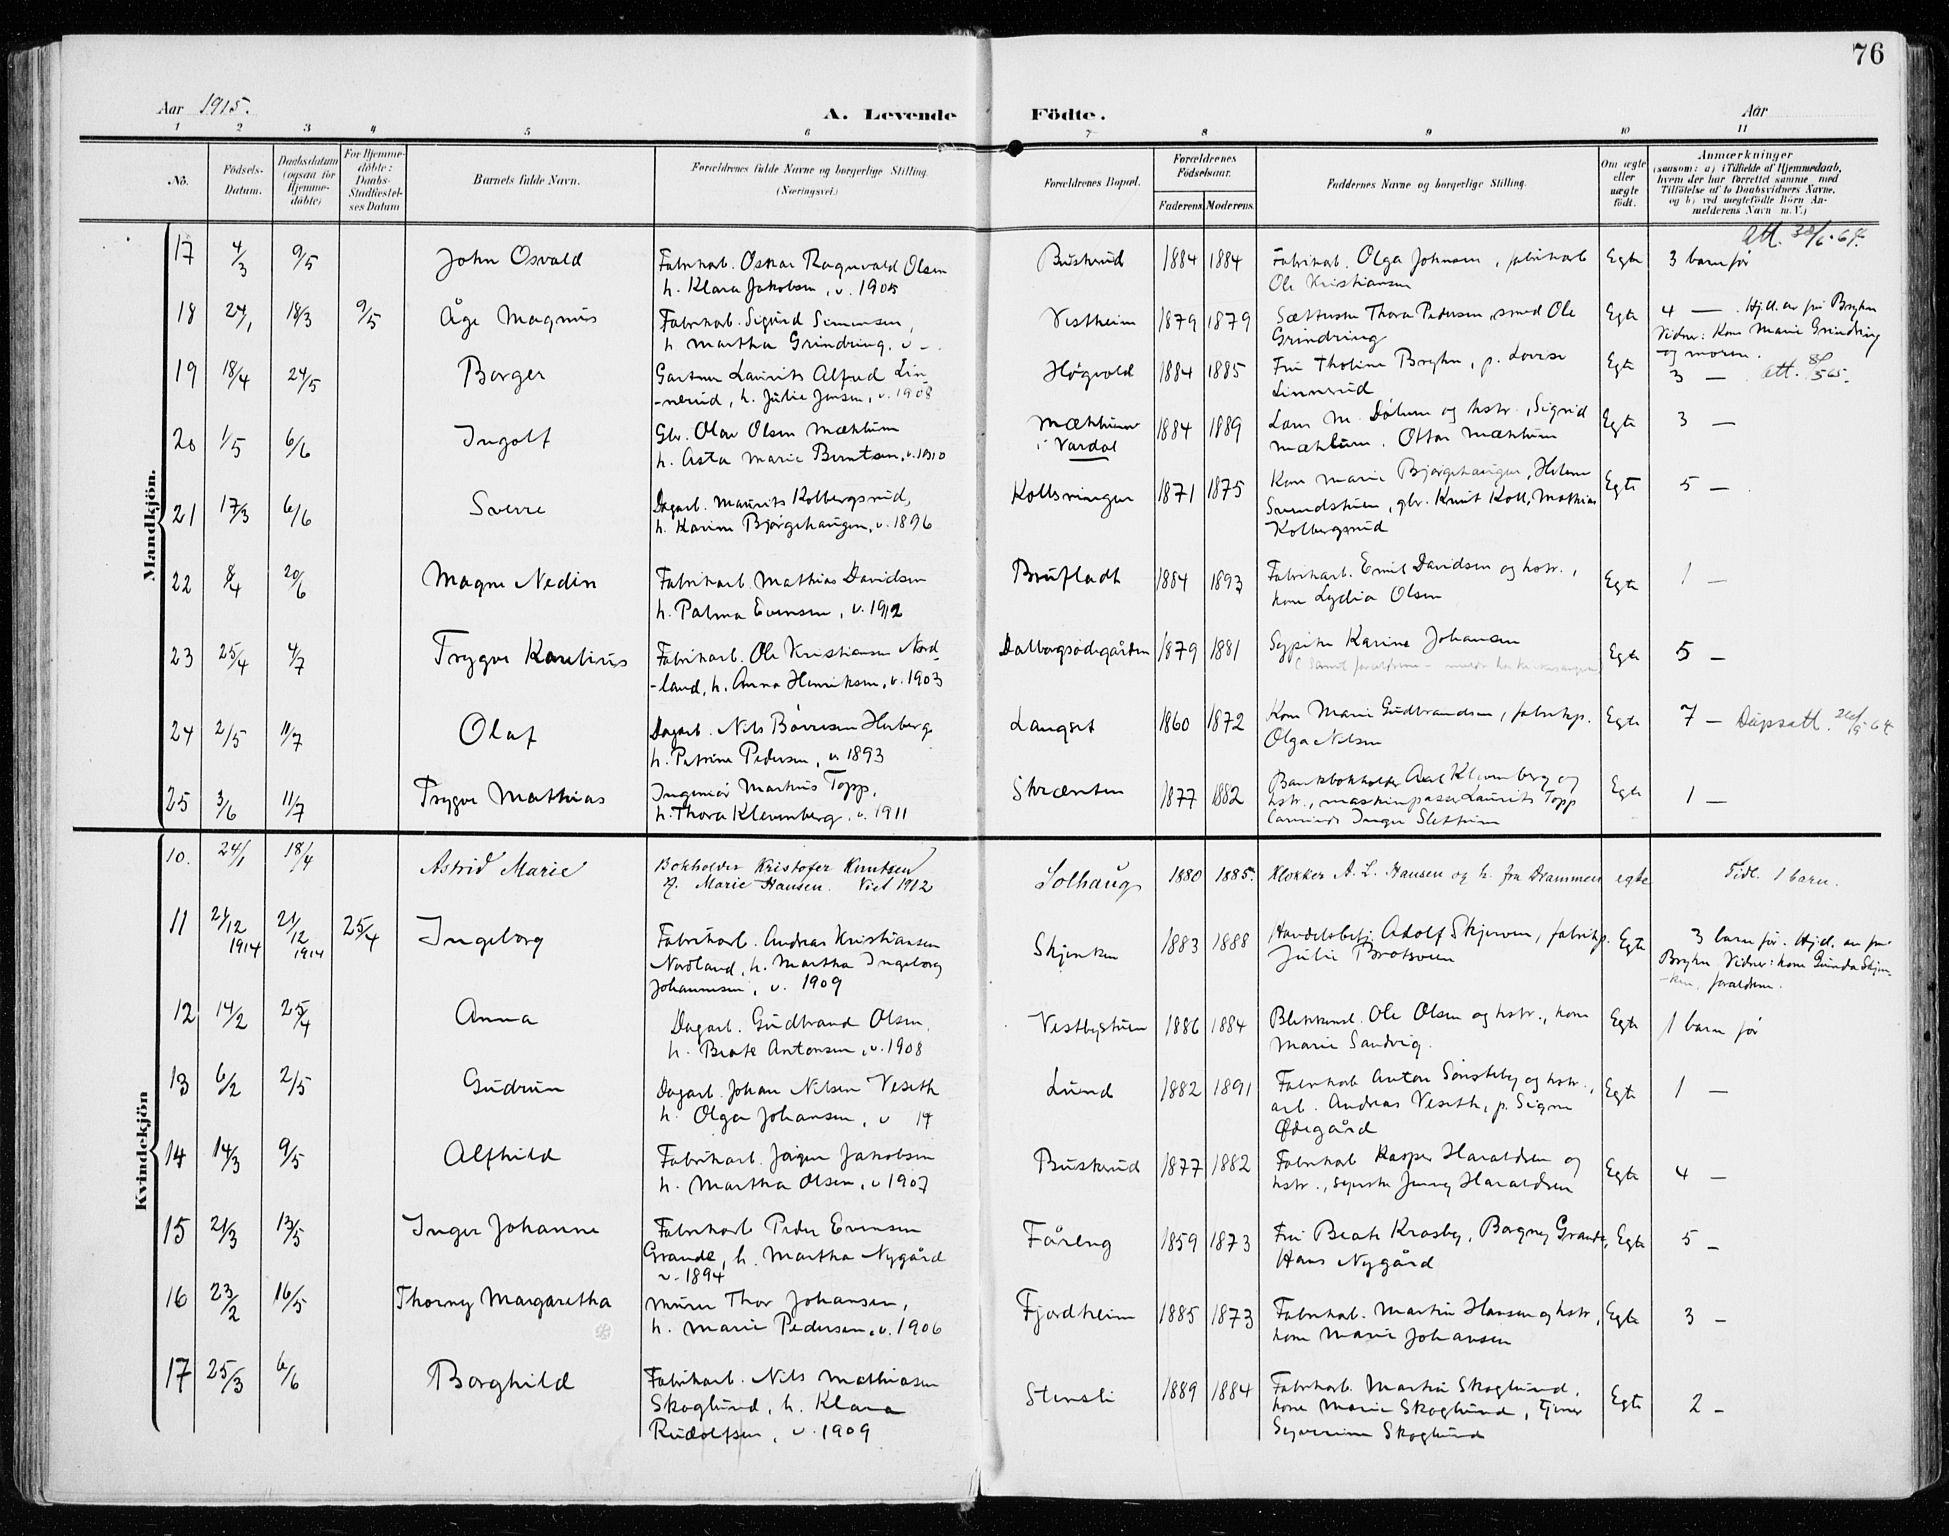 76
Aar 1915.
A. Levende Födte.
Aar
1 2 3 4 5 6 7 8 9 10 11
No.
Födsels-Datum.
Daabsdatum (ogsaa for Hjemme-döbte)
For Hjemme-döbte: Daabs-Stadfæstel-ses Datum
Barnets fulde Navn.
Forældrenes fulde Navne og borgerlige Stilling. (Næringsvei.)
Forældrenes Bopæl.
Forældrenes Födselsaar.
Faderens. Moderens.
Faddernes Navne og borgerlige Stilling.
Om ægte eller uægte födt.
Anmærkninger
(saasom: a) i Tilfælde af Hjemmedaab, hvem der har forrettet samme med Tilföielse af to Daabsvidners Navne, og b) ved uegtefödte Börn An-melderens Navn m. V.)
Mandkjön.
17 4/3 9/5 John Osvald
Fabrikarb. Oskar Ragnvald Olsen
h. Klara Jakobsen, v. 1905
Buskrud 1884 1884
Fabrikarb. Olga Johnsen, fabrikarb
Ole Kristiansen
Egte 3 barn før
18 24/1 18/3 9/5 Åge Magnus
Fabrikarb. Sigurd Simensen,
h. Martha Grindring. v -
Vestheim 1879 1879
Thora Pedersen, smed Ole
Grindring
Egte 4 — . Hj.d. av fru Bryhn
Vidner: Kone Marie Grindring
og moren.
19 18/4 24/5 Borger
Gartner Laurits Alfred Lin-
-nerud, h. Julie Jensen, v. 1908
Høgvold 1884 1885
Fru Tholine Bryhn, p. Lovise
Linnerud
Egte 3 — . att.
20 1/5 6/6 Ingolf
Gbr. Olav Olsen Mæhlum
h. Asta Marie Berntsen, v. 1910
Mæhlum
i Vardal 1884 1889
Lars M. Dølum og hstr., Sigrid
Mæhlum. Ottar Mæhlum
Egte 3 —
21 17/3 6/6 Sverre
Dagarb. Maurits Kolbergsrud,
h. Karine Bjørgehaugen, v. 1896
Kollsveen 1871 1875
Kone Marie Bjørgehaugen, Helene
Svendstuen, gbr. Knut Koll, Mathias
Kolbergsrud
Egte 5 —
22 8/4 20/6 Magne Nedin
Fabrikarb. Mathias Davidsen
h. Palma Evensen, v. 1912
Brufladt 1884 1893
Fabrikarb. Emil Davidsen og hstr.,
kone Lydia Olsen
Egte 1 —
23 25/4 4/7 Trygve Karelius
Fabrikarb. Ole Kristiansen Nord-
-land, h. Anna Henriksen, v. 1903
Dalborgsødegården 1879 1881
Sypike Karine Johansen
Egte 5 —
24 2/5 11/7 Olaf
Dagarb. Nils Børresen Herberg
h. Petrine Pedersen, v. 1893
Langset 1860 1872
Kone Marie Gudbrandsen, fabrikp.
Olga Nilsen
Egte 7 — Dåpsatt.
25 3/6 11/7 Trygve Mathias
Ingeniør Markus Topp,
h. Thora Klevenberg. v. 1911
Skrænten 1877 1882
Bankbokholder Klevenberg og
hstr., maskinpasser Laurits Topp
Inger Slettheim
Egte 1 —
Kvindekjön
10. 24/1 18/4 Astrid Marie
Bokholder Kristofer Knutsen
h. Marie Hansen. Viet 1912
Solhaug 1880 1885.
Klokker A. L. Hansen og h. fra Drammen
egte Tidl. 1 barn.
11 21/12 1914 21/12 1914 25/4 Ingeborg
Fabrikarb. Andreas Kristiansen
Nordland, h. Martha Ingeborg
Johannesen, v. 1909
Skjenken 1883 1888
Handelsbetj. Adolf Skjerven, fabrikp.
Julie Brotsveen
Egte 3 barn før. Hj.d. av fru
Bryhn Vidner: kone Gunda Skjen-
-ken, foraldrene.
12 14/2 25/4 Anna
Dagarb. Gudbrand Olsen,
h. Beate Antonsen, v. 1908
Vestbystuen 1886 1884
Blikkensl. Ole Olsen og hstr., kone
Marie Sandvig.
Egte 1 barn før
13 6/2 2/5 Gudrun
Dagarb. Johan Nilsen Veseth
h. Olga Johansen, v 14
Lund 1882 1891
Fabrikarb Anton Sønsteby og hstr.,
arb. Andreas Veseth, p. Signe
Ødegård
Egte 1 —
14 14/3 9/5 Alfhild
Fabrikarb. Jørgen Jakobsen
h. Martha Olsen, v 1907
Buskrud 1877 1882
Fabrikarb Kasper Haraldsen og
hstr., syerske Jenny Haraldsen
Egte 4 —
15 21/3 13/5 Inger Johanne
Fabrikarb Peder Evensen
Grande, h. Martha Nygård
v. 1894
Fåreng 1859 1873
Fru Beate Krasby, Borgny Grande,
Hans Nygård
Egte 5 —
16 23/2 16/5 Thorney Margaretha
Murer Thor Johansen,
h. Marie Pedersen. v. 1906
Fjordheim 1885 1873
Fabrikarb. Martin Hansen og hstr,
kone Marie Johansen
Egte 3 —
17 25/3 6/6 Borghild
Fabrikarb. Nils Mathiasen
Skoglund, h. Klara
Rudolfsen, v. 1909
Stensli 1889 1884
Fabrikarb. Martin Skoglund,
kone Marie Skoglund, tjener
Severine Skoglund
Egte 2 —